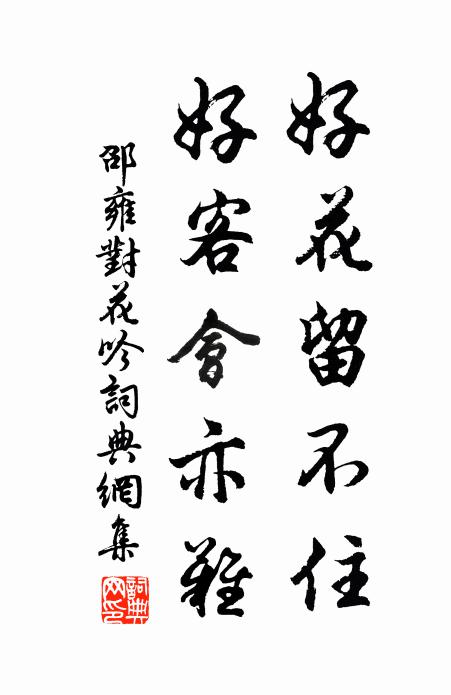 好花留不住
好客會亦難
邵雍對花吟詞典網集
詞典網印